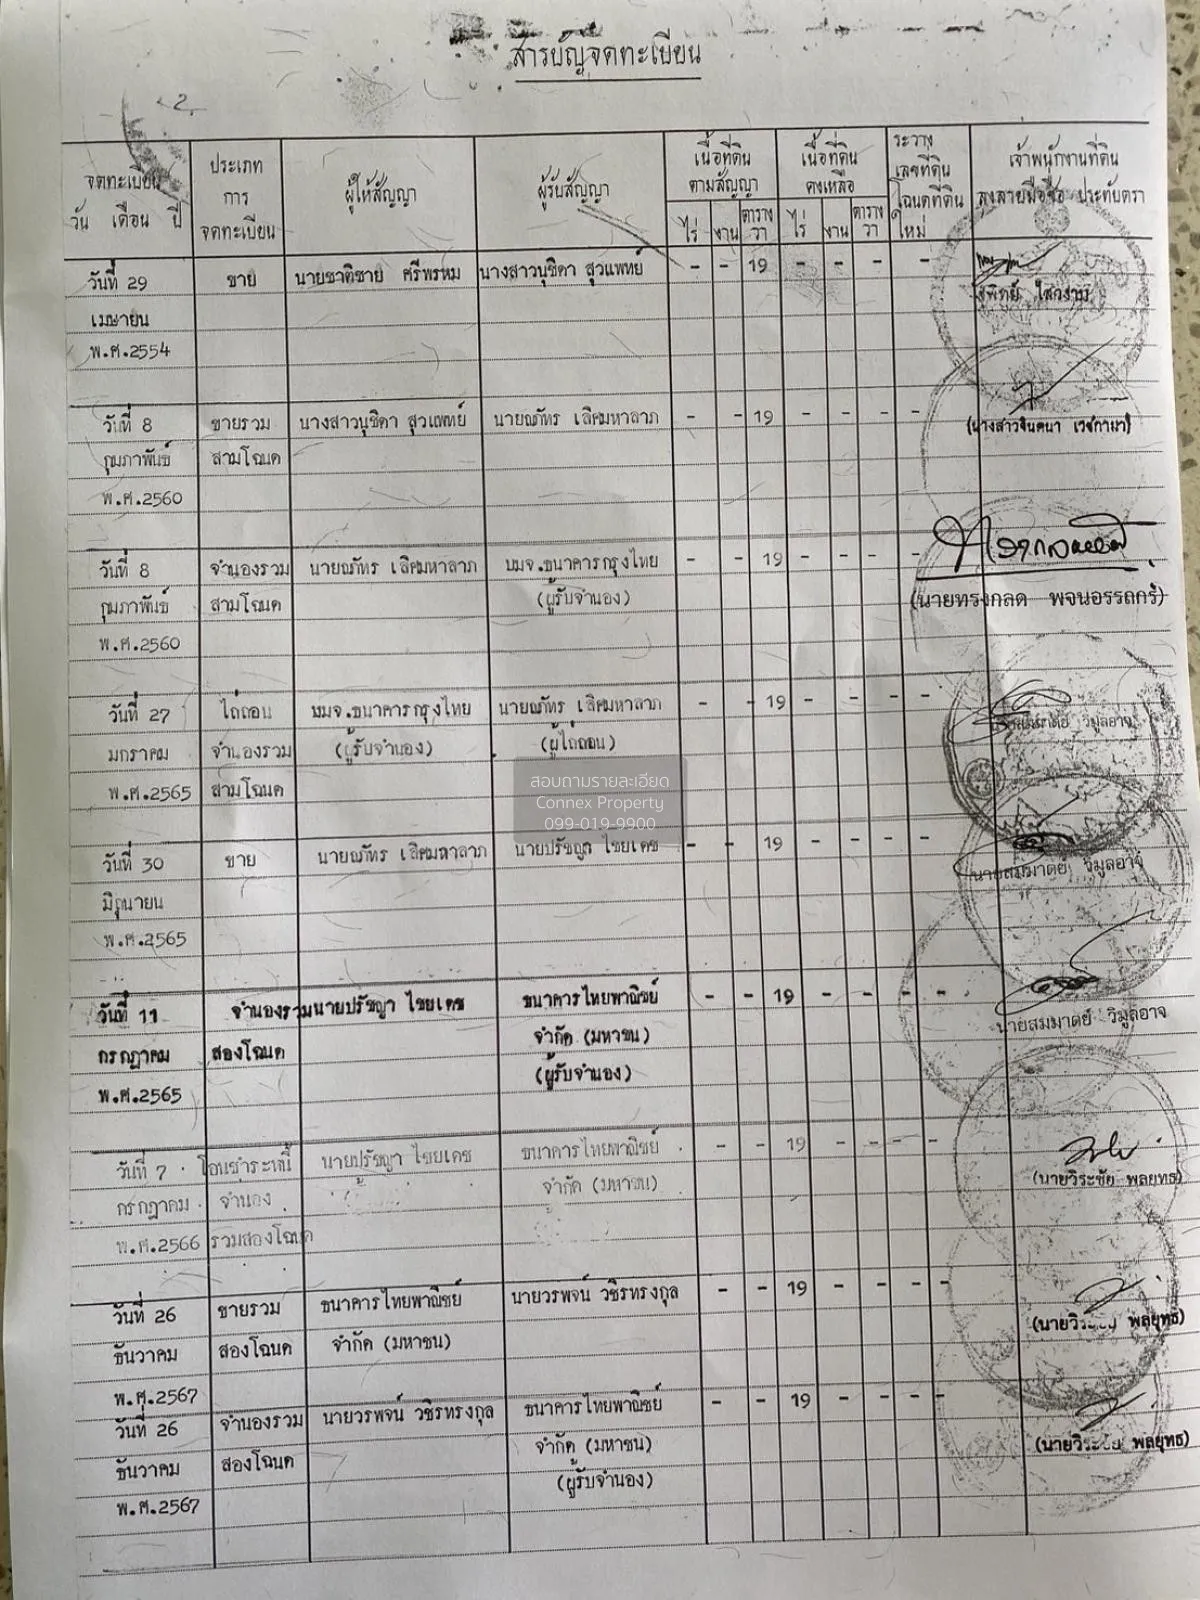 สารบัญจดทะเบียน
2
จดทะเบียน วัน เดือน ปี
ประเภทการจดทะเบียน
ผู้ให้สัญญา
ผู้รับสัญญา
เนื้อที่ดินตามสัญญา
เนื้อที่ดินคงเหลือ
ระวาง เลขที่ดิน โฉนดที่ดินใหม่
เจ้าพนักงานที่ดิน ลงลายมือชื่อ ประทับตรา
ไร่ งาน ตารางวา ไร่ งาน ตารางวา
วันที่ 29 ขาย นายชาติชาย ศรีพรหม นางสาวนุชิดา สุวแพทย์ - - 19 - - - -
เมษายน
พ.ศ.2554
วันที่ 8 ขายรวม นางสาวนุชิดา สุวแพทย์ นายณภัทร เลิศมหาลาภ - - 19 - - - -
(นางสาวจินตนา เวชกามา)
กุมภาพันธ์ สามโฉนด
พ.ศ.2560
วันที่ 8 จำนองรวม นายณภัทร เลิศมหาลาภ บมจ.ธนาคารกรุงไทย - - 19 - - - -
กุมภาพันธ์ สามโฉนด (ผู้รับจำนอง) (นายทรงกลด พจนอรรถกร์)
พ.ศ.2560
วันที่ 27 ไถ่ถอน บมจ.ธนาคารกรุงไทย นายณภัทร เลิศมหาลาภ - - 19 - - - -
นายสมมาตย์ วิมูลอาจ
มกราคม จำนองรวม (ผู้รับจำนอง) (ผู้ไถ่ถอน)
พ.ศ.2565 สามโฉนด
สอบถามรายละเอียด
Connex Property
099-019-9900
วันที่ 30 ขาย นายณภัทร เลิศมหาลาภ นายปรัชญา ไชยเดช - - 19 - - - -
นายสมมาตย์ วิมูลอาจ
มิถุนายน
พ.ศ.2565
วันที่ 11 จำนองรวม นายปรัชญา ไชยเดช ธนาคารไทยพาณิชย์ - - 19 - - - -
นายสมมาตย์ วิมูลอาจ
กรกฎาคม สองโฉนด จำกัด (มหาชน)
พ.ศ.2565 (ผู้รับจำนอง)
วันที่ 7 โอนชำระหนี้ นายปรัชญา ไชยเดช ธนาคารไทยพาณิชย์ - - 19 - - - -
(นายวิระชัย พลยุทธ)
กรกฎาคม จำนอง จำกัด (มหาชน)
พ.ศ.2566 รวมสองโฉนด
วันที่ 26 ขายรวม ธนาคารไทยพาณิชย์ นายวรพจน์ วชิรทรงกุล - - 19 - - - -
(นายวิระชัย พลยุทธ)
ธันวาคม สองโฉนด จำกัด (มหาชน)
พ.ศ.2567
วันที่ 26 จำนองรวม นายวรพจน์ วชิรทรงกุล ธนาคารไทยพาณิชย์ - - 19 - - - -
(นายวิระชัย พลยุทธ)
ธันวาคม สองโฉนด จำกัด (มหาชน)
พ.ศ.2567 (ผู้รับจำนอง)